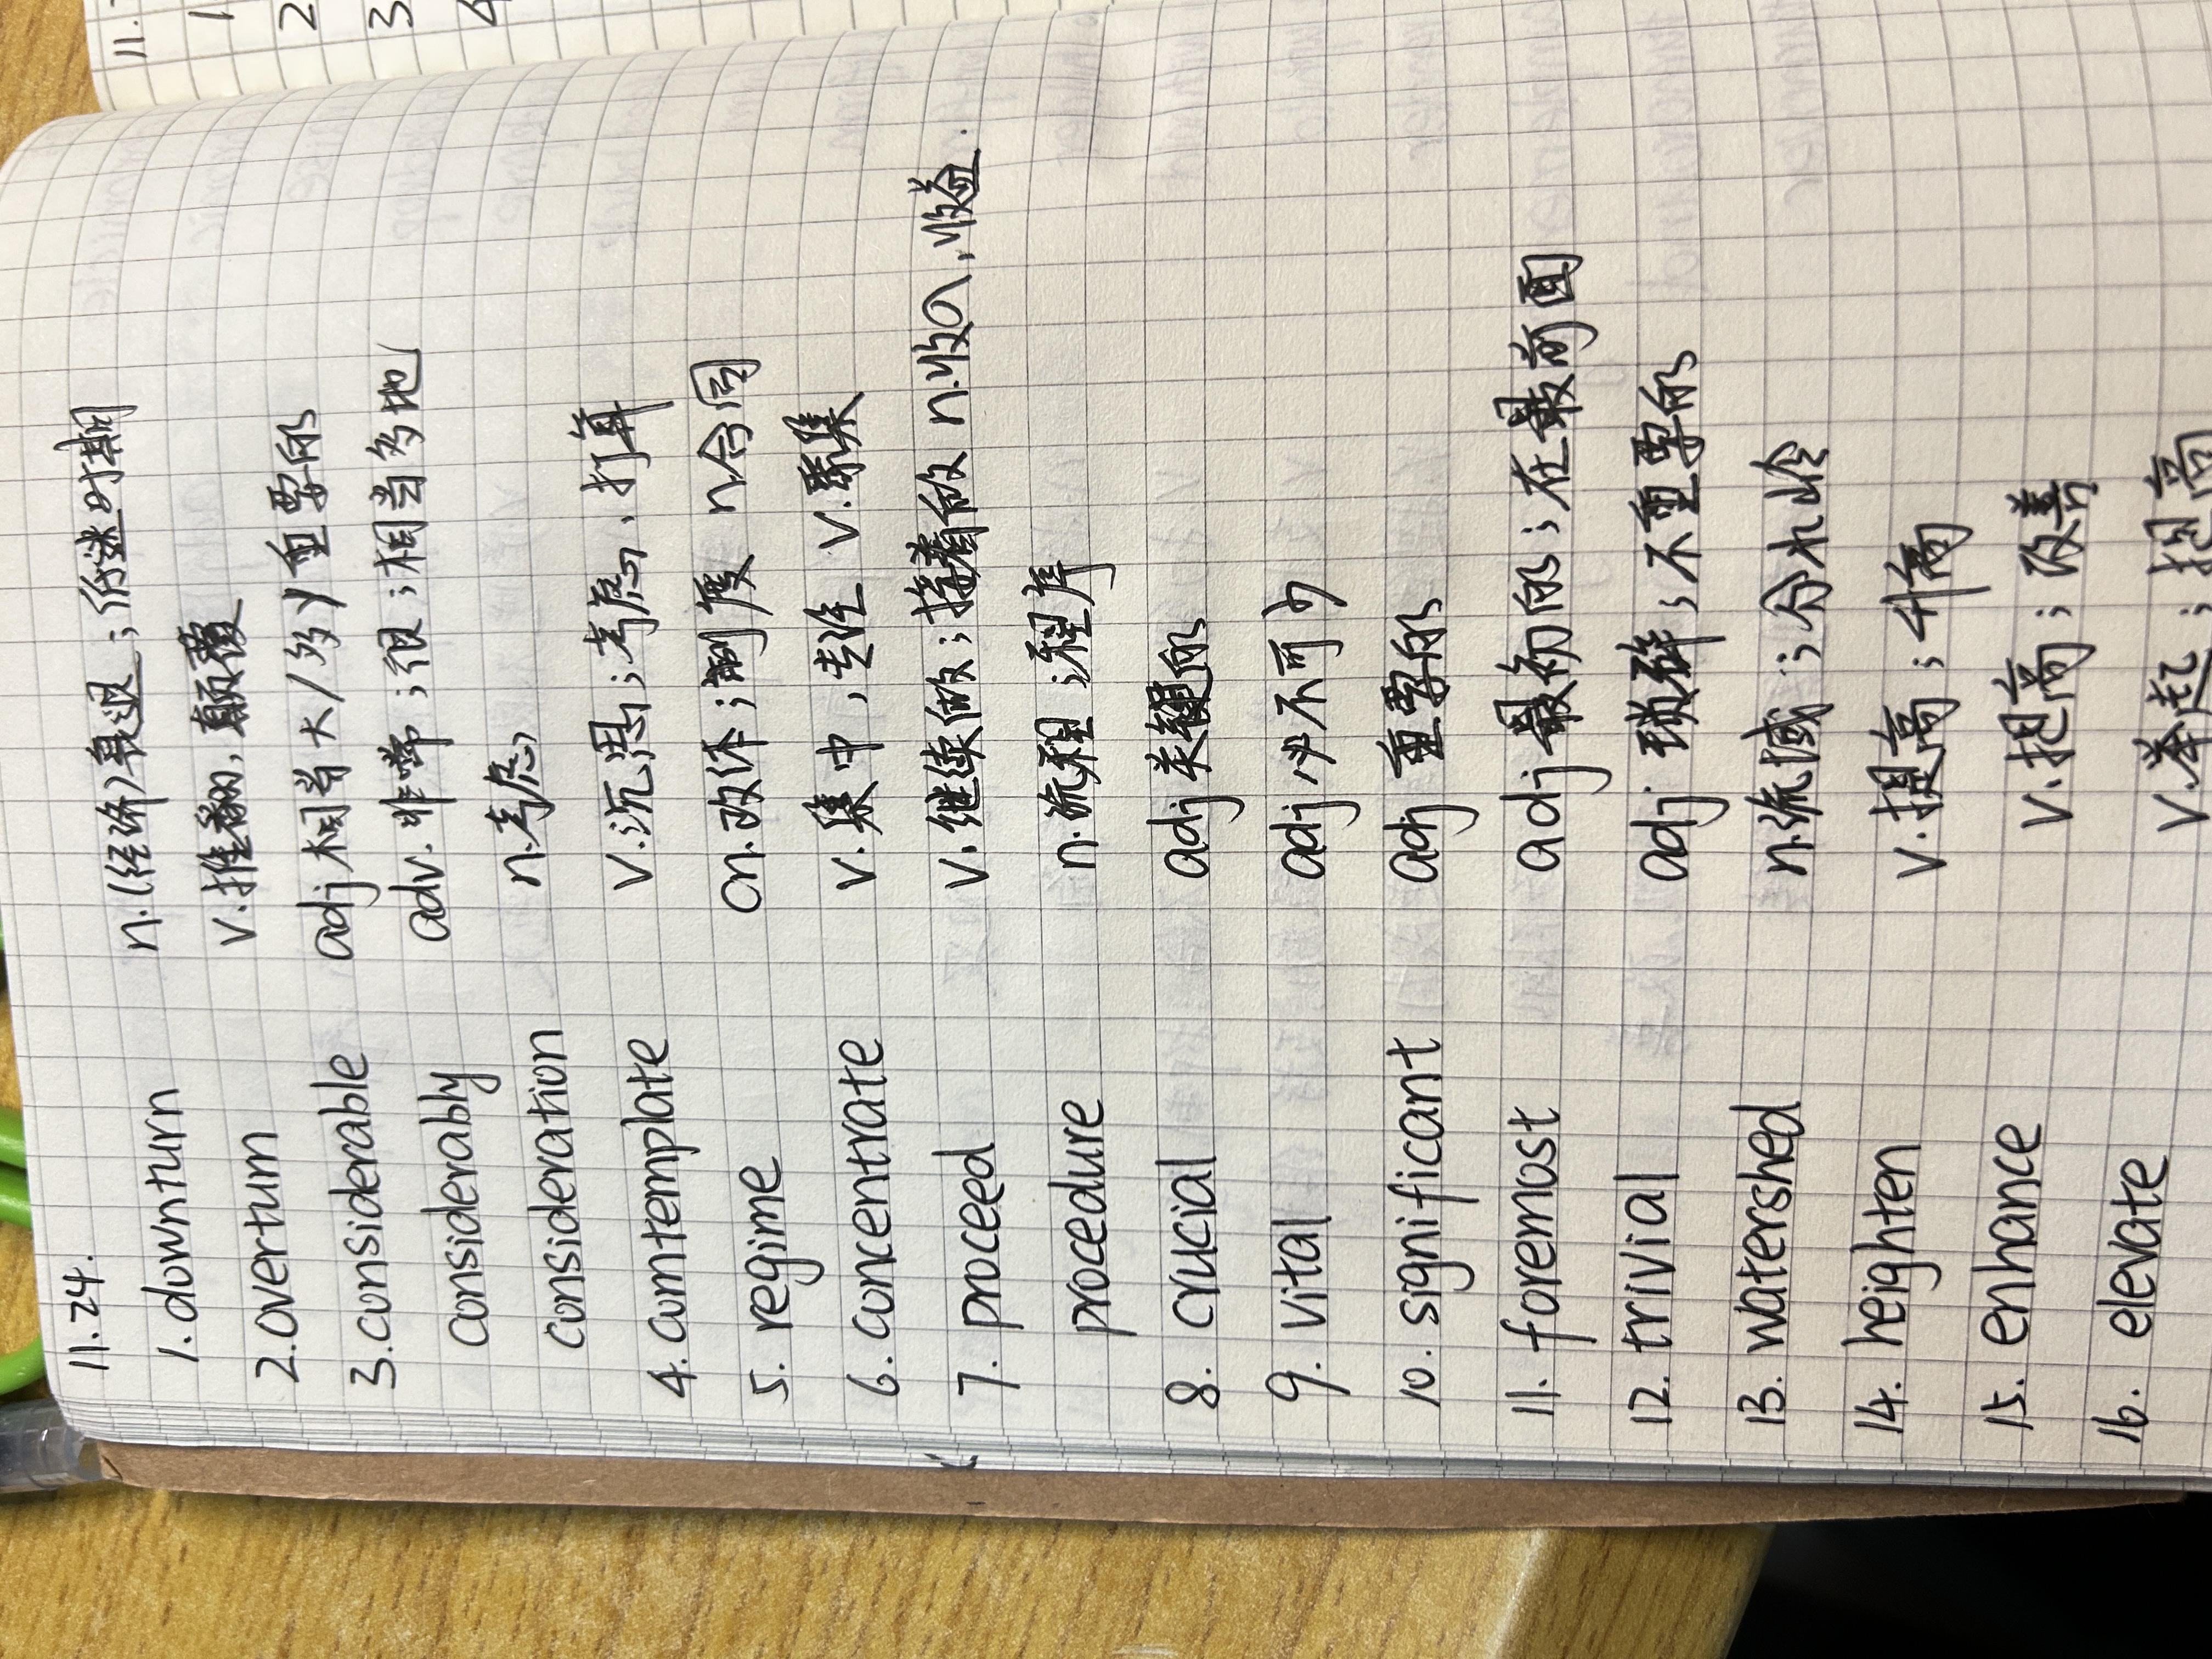 11.24.
1. downturn n.(经济)衰退；低迷时期
2. overturn v.推翻，颠覆
3. considerable adj 相当大/多/重要的
considerably adv. 非常；很；相当多地
consideration n.考虑
4. comtemplate v.沉思；考虑，打算
5. regime cn.政体；制度 n.合同
6. concentrate v.集中，专注 v.聚集
7. proceed v.继续做；接着做 n.收入，收益.
procedure n.流程；程序
8. crucial adj 关键的
9. vital adj 必不可少
10. significant adj 重要的
11. foremost adj 最初的；在最前面
12. trivial adj 琐碎；不重要的
13. watershed n.流域；分水岭
14. heighten v.提高；升高
15. enhance v.提高；改善
16. elevate v.举起；提高
11.
1
2
3
4